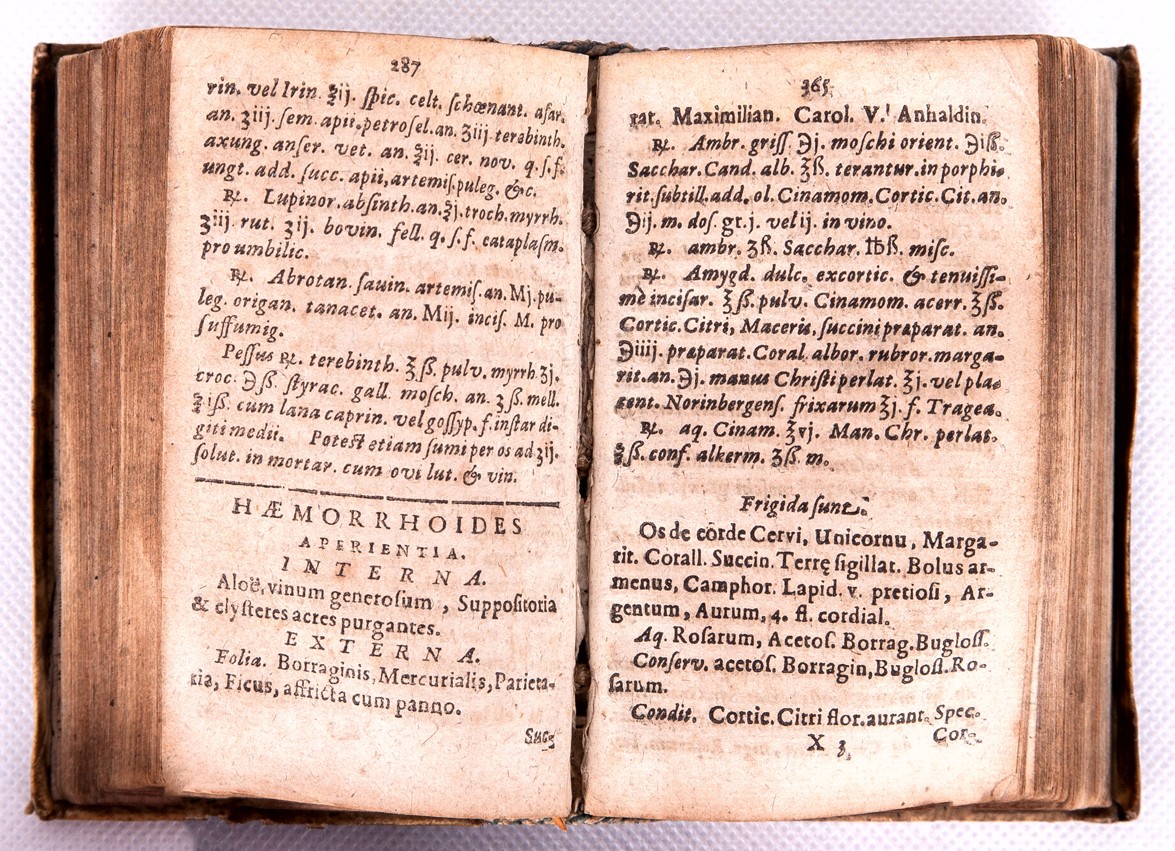 287
rin. vel Irin. ℥ij. ſpic. celt. ſchœnant. aſar.
an. ʒiij. ſem. apii. petroſel. an. ʒiij terebinth.
axung. anſer. vet. an. ℥ij. cer. nov. q. ſ. f.
ungt. add. ſucc. apii, artemiſ. puleg. &c.
℞. Lupinor. abſinth. an. ℥j. troch. myrrh.
ʒiij. rut. ʒij. bovin. fell. q. ſ. f. cataplaſm.
pro umbilic.
℞. Abrotan. ſauin. artemiſ. an. Mj. pu-
leg. origan. tanacet. an. Mij. inciſ. M. pro
ſuffumig.
Peſſus ℞. terebinth. ℥ ß. pulv. myrrh ʒj.
croc. ℈ ß. ſtyrac. gall. moſch. an. ʒ ß. mell.
℥iß. cum lana caprin. vel goſſyp. f. inſtar di-
giti medii. Poteſt etiam ſumi per os ad ʒij.
ſolut. in mortar. cum ovi lut. & vin.
HÆMORRHOIDES
APERIENTIA.
INTERNA.
Aloë, vinum generoſum, Suppoſitoria
& clyſteres acres purgantes.
EXTERNA.
Folia. Borraginis, Mercurialis, Parieta-
ria, Ficus, affricta cum panno.
365
rat. Maximilian. Carol. V. Anhaldin.
℞. Ambr. griſſ. ℈j. moſchi orient. ℈iß.
Sacchar. Cand. alb. ℥ß. terantur. in porphi-
rit. ſubtill. add. ol. Cinamom. Cortic. Cit. an.
℈ij. m. doſ. gr. j. vel ij. in vino.
℞. ambr. ʒß. Sacchar. ℔ß. miſc.
℞. Amygd. dulc. excortic. & tenuiſſi-
mè inciſar. ℥ ß. pulv. Cinamom. acerr. ℥ß.
Cortic. Citri, Maceris, ſuccini præparat. an.
℈iiij. præparat. Coral. albor. rubror. marga-
rit. an. ℈j. manus Chriſti perlat. ℥j. vel pla-
cent. Norinbergenſ. frixarum ℥j. f. Tragea.
℞. aq. Cinam. ℥vj. Man. Chr. perlat.
℥ß. conf. alkerm. ʒß. m.
Frigida ſunt.
Os de corde Cervi, Unicornu, Marga-
rit. Corall. Succin. Terrę ſigillat. Bolus ar-
menus, Camphor. Lapid. v. pretioſi, Ar-
gentum, Aurum, 4. fl. cordial.
Aq. Roſarum, Acetoſ. Borrag. Bugloſſ.
Conſerv. acetoſ. Borragin, Bugloſſ. Ro-
ſarum.
Condit. Cortic. Citri flor. aurant. Spec.
X 3 Cor-